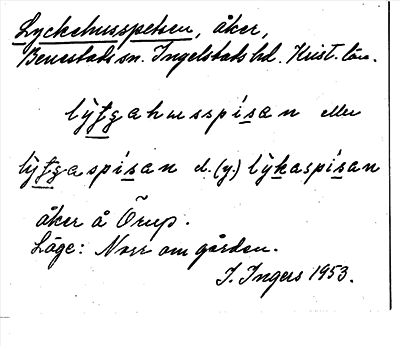 Lyckehusspetsen, åker,
Benestads sn. Ingelstads hd. Krist. län.
eller
d. (y.)
åker å Örup.
Läge: Norr om gården.
I. Ingers 1953.